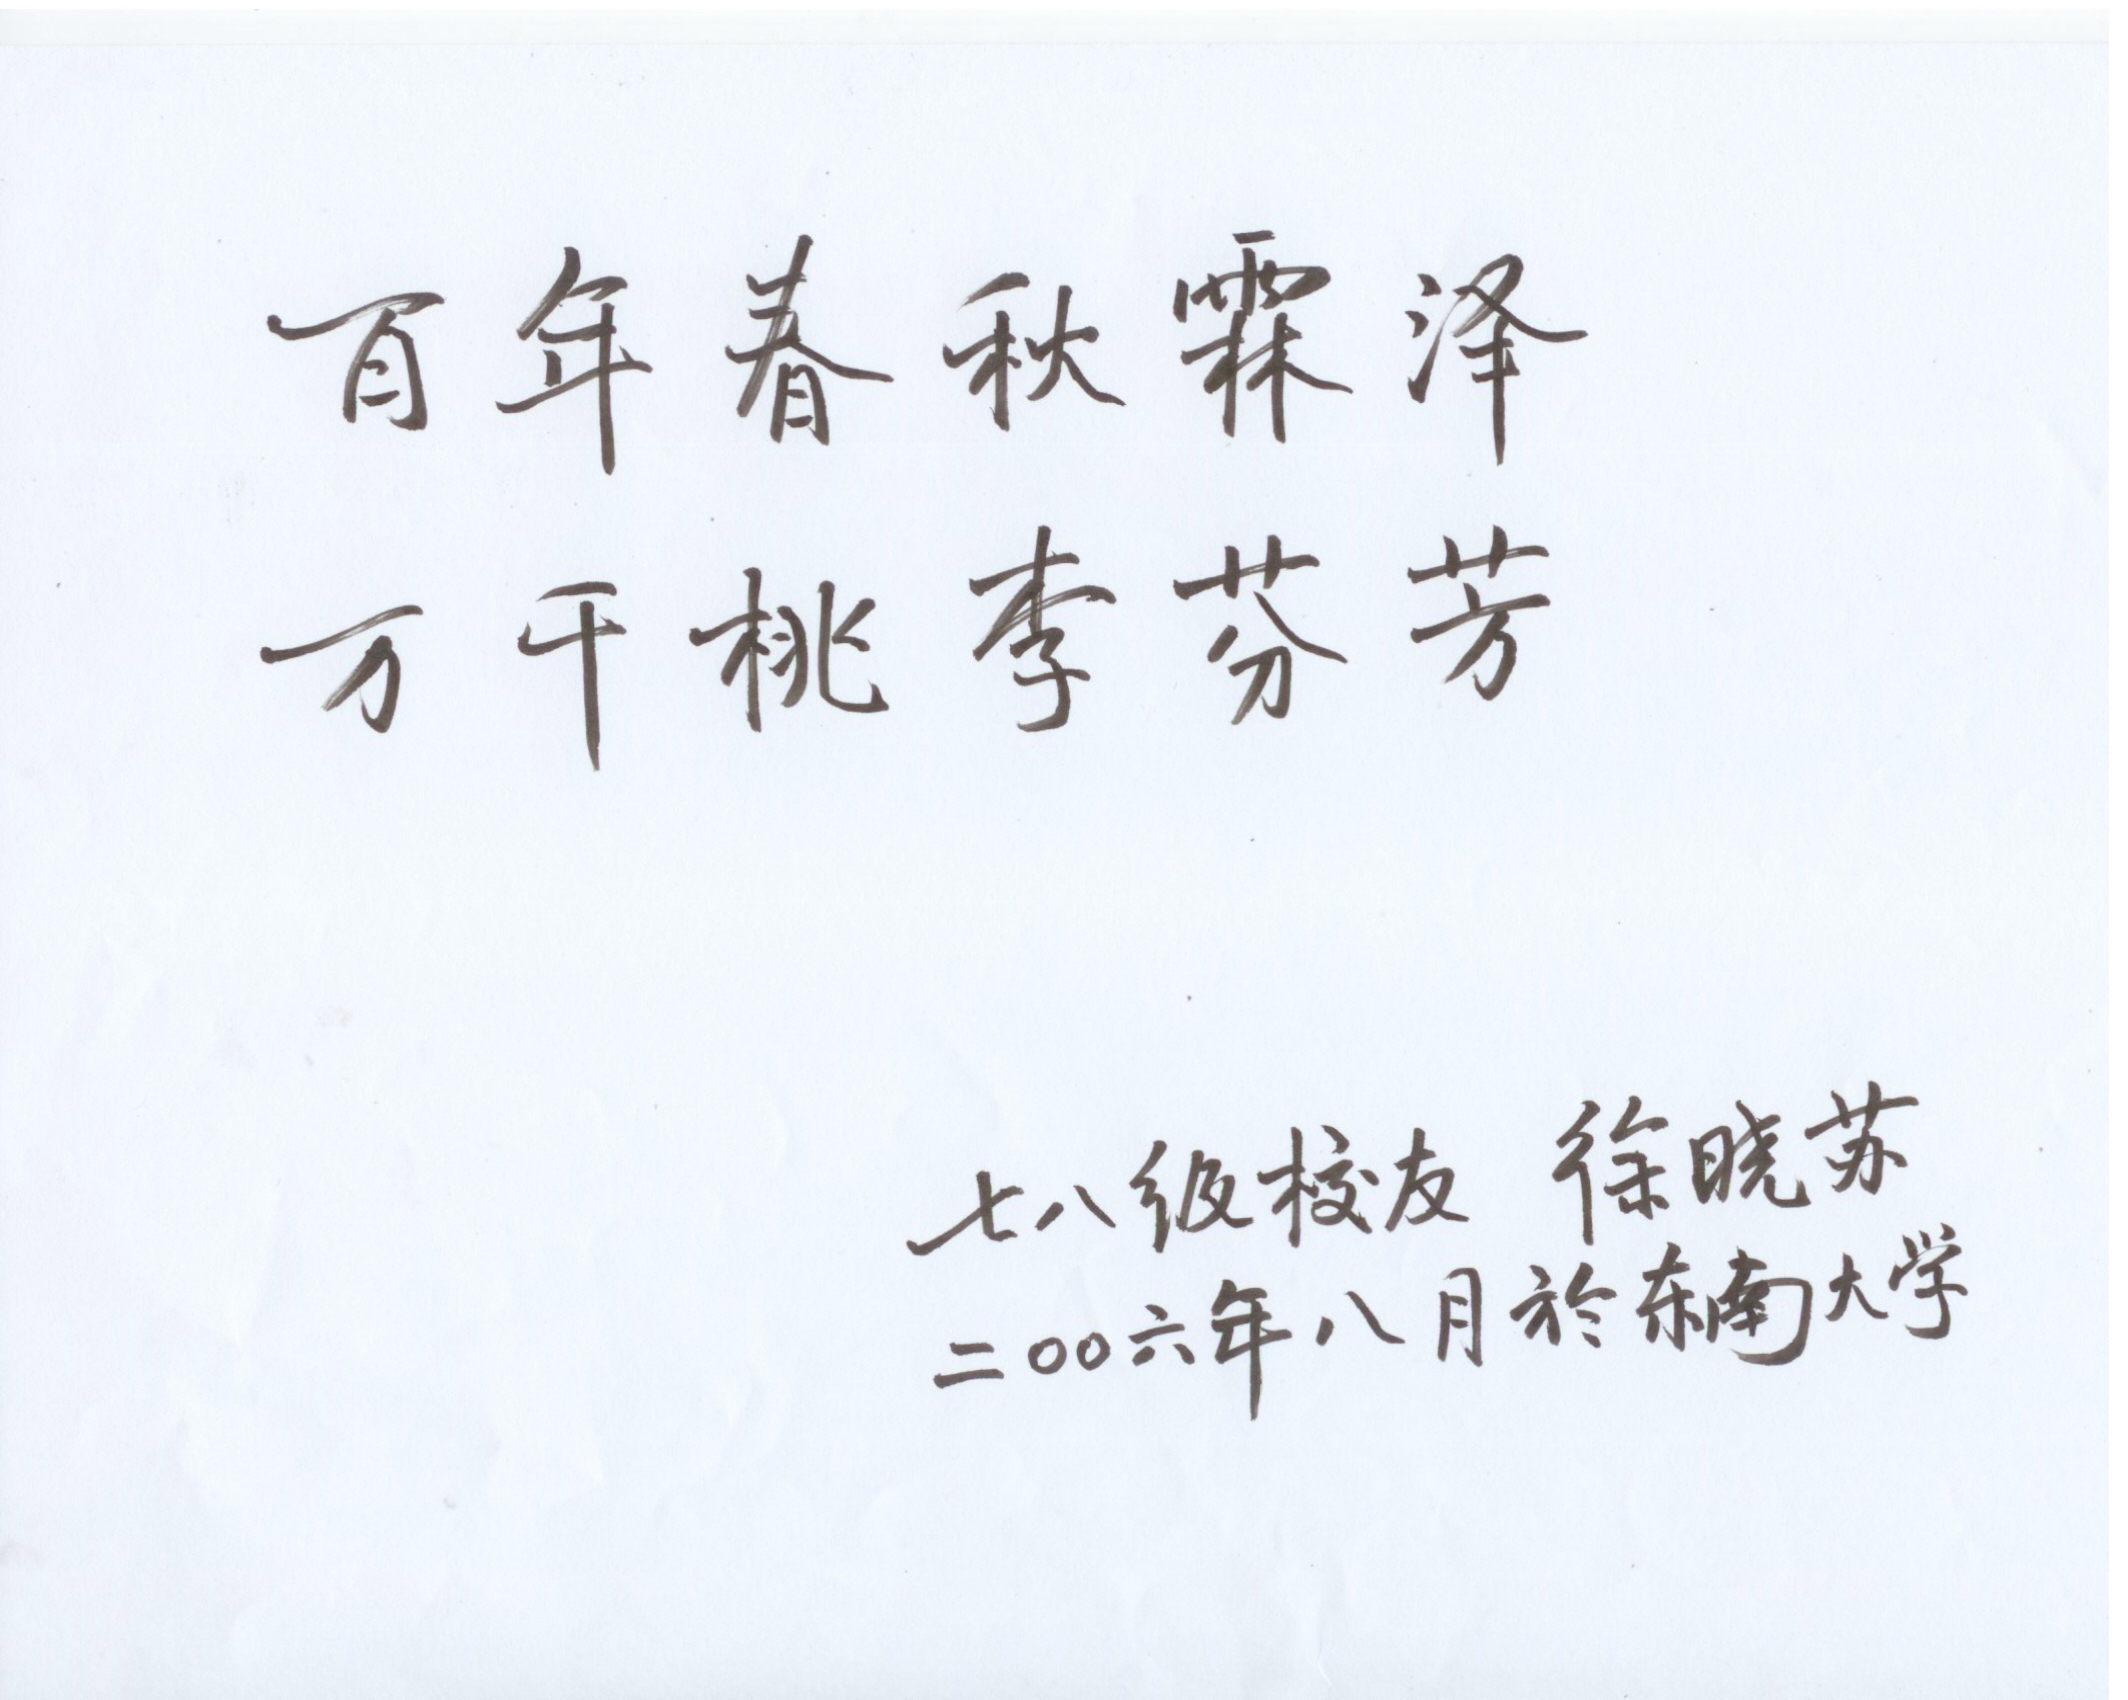 百年春秋霖泽
万千桃李芬芳
七八级校友 徐晓苏
二〇〇六年八月於东南大学